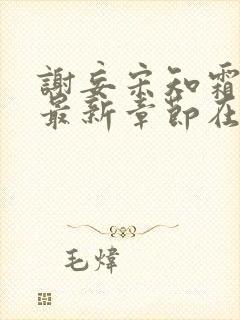 謝妄宋知霜
最新章節在
毛煒